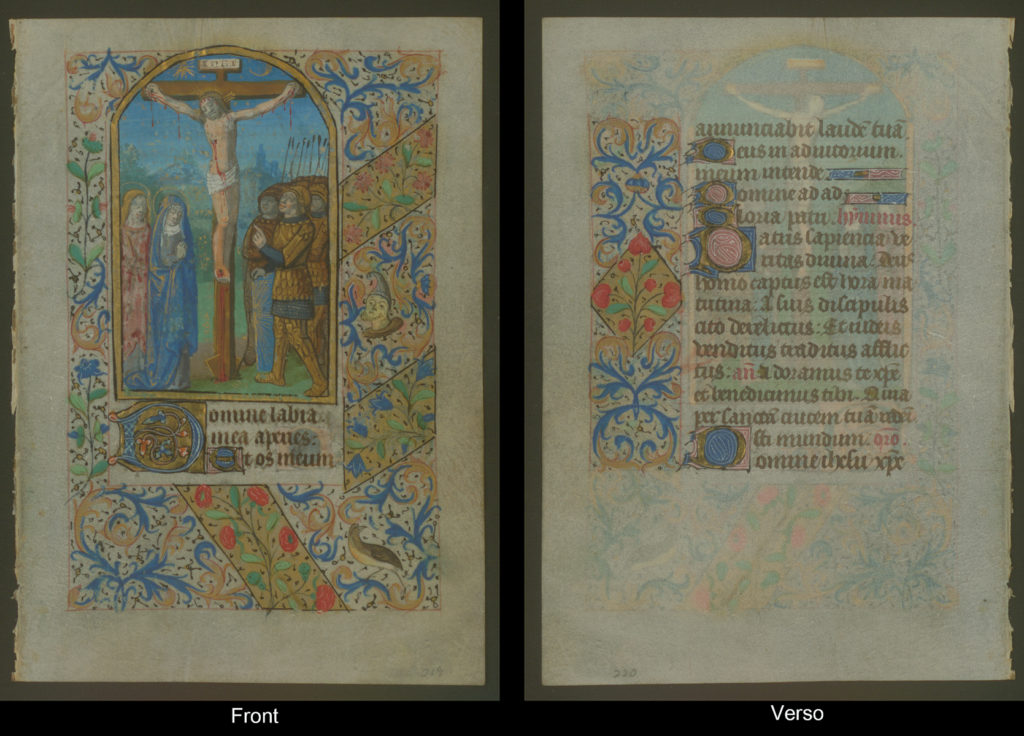 omine labia
mea aperies:
t os meum
Front
annunciabit laudē tuā
eus in adiutorium
meum intende
omine ad ad
loria patri. hymnus
atris sapiencia ve
ritas divina. Deus
homo captus est hora ma
tutina: A suis discipulis
cito derelictus: Et iudeis
venditus traditus afflic
tus: añ adoramus te xp̄e
et benedicimus tibi. Quia
per sanctā crucem tuā redē
sti mundum. oro.
omine ihesu xp̄e
Verso